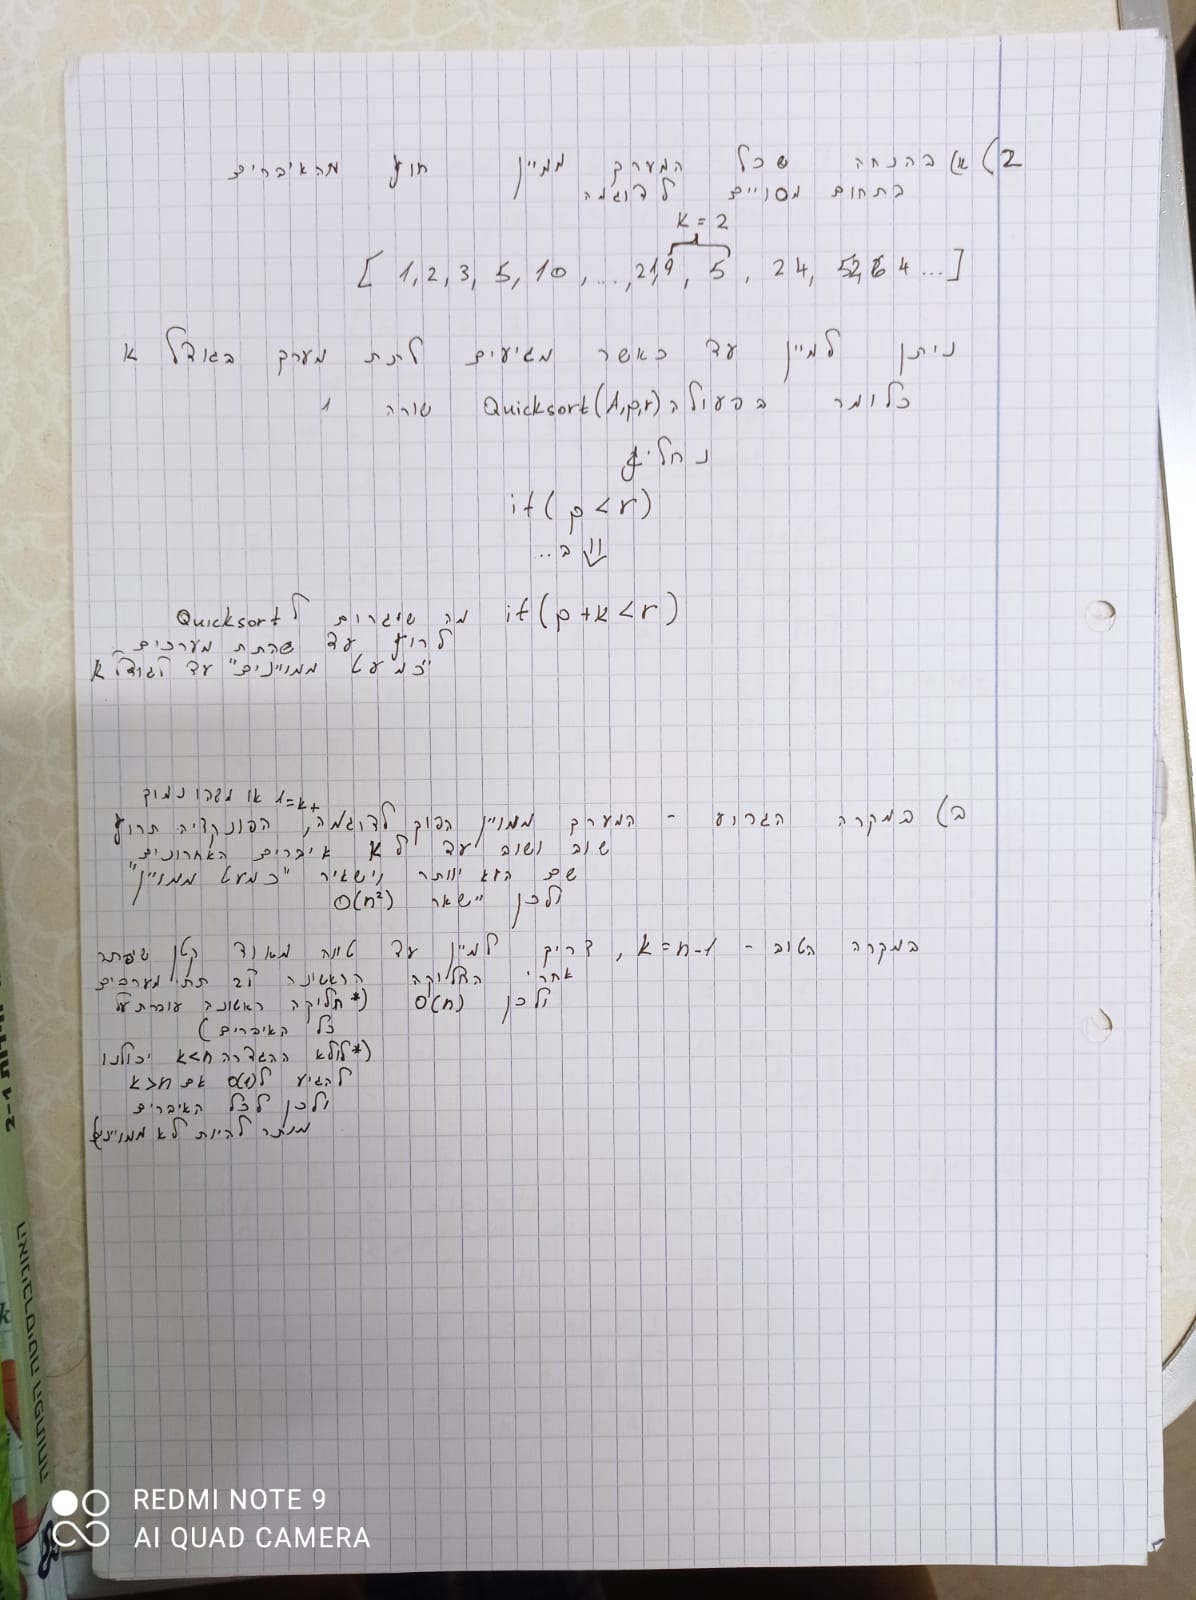 2) א) בהנחה שכל המערך ממיין חוץ מהאיברים
בתחום מסויים לדוגמה
k = 2
[ 1, 2, 3, 5, 10, ..., 21, 9, 5, 24, 52, 64 ... ]
ניתן למיין עד כאשר מגיעים לתת מערך בגודל k
כלומר בפעולה Quicksort(A,p,r) שורה 1
נחליף
if( p < r )
ב..
if( p + k < r ) מה שיגרום ל Quicksort
לרוץ עד שהתת מערכים
"כמעט ממויינים" עד לגודל k
1=k או משהו נמוך
ב) במקרה הגרוע - המערך ממויין הפוך לדוגמה, הפונקציה תרוץ
שוב ושוב עד ל k איברים האחרונים
שם היא יוותר וישאיר "כמעט ממויין"
ולכן יישאר O(n²)
במקרה הטוב - k = n-1, צריך למיין עד טווח מאוד קטן
אחרי החלוקה הראשונה ל2 תתי מערכים
ולכן O(n) (*חלוקה ראשונה עוברת על
כל האיברים)
(*לולא ההגדרה k<n יכולנו
להגיע ל O(1) אם k>n
ולכן לכל האיברים
מותר להיות לא ממויינים
2-1
k
REDMI NOTE 9
AI QUAD CAMERA